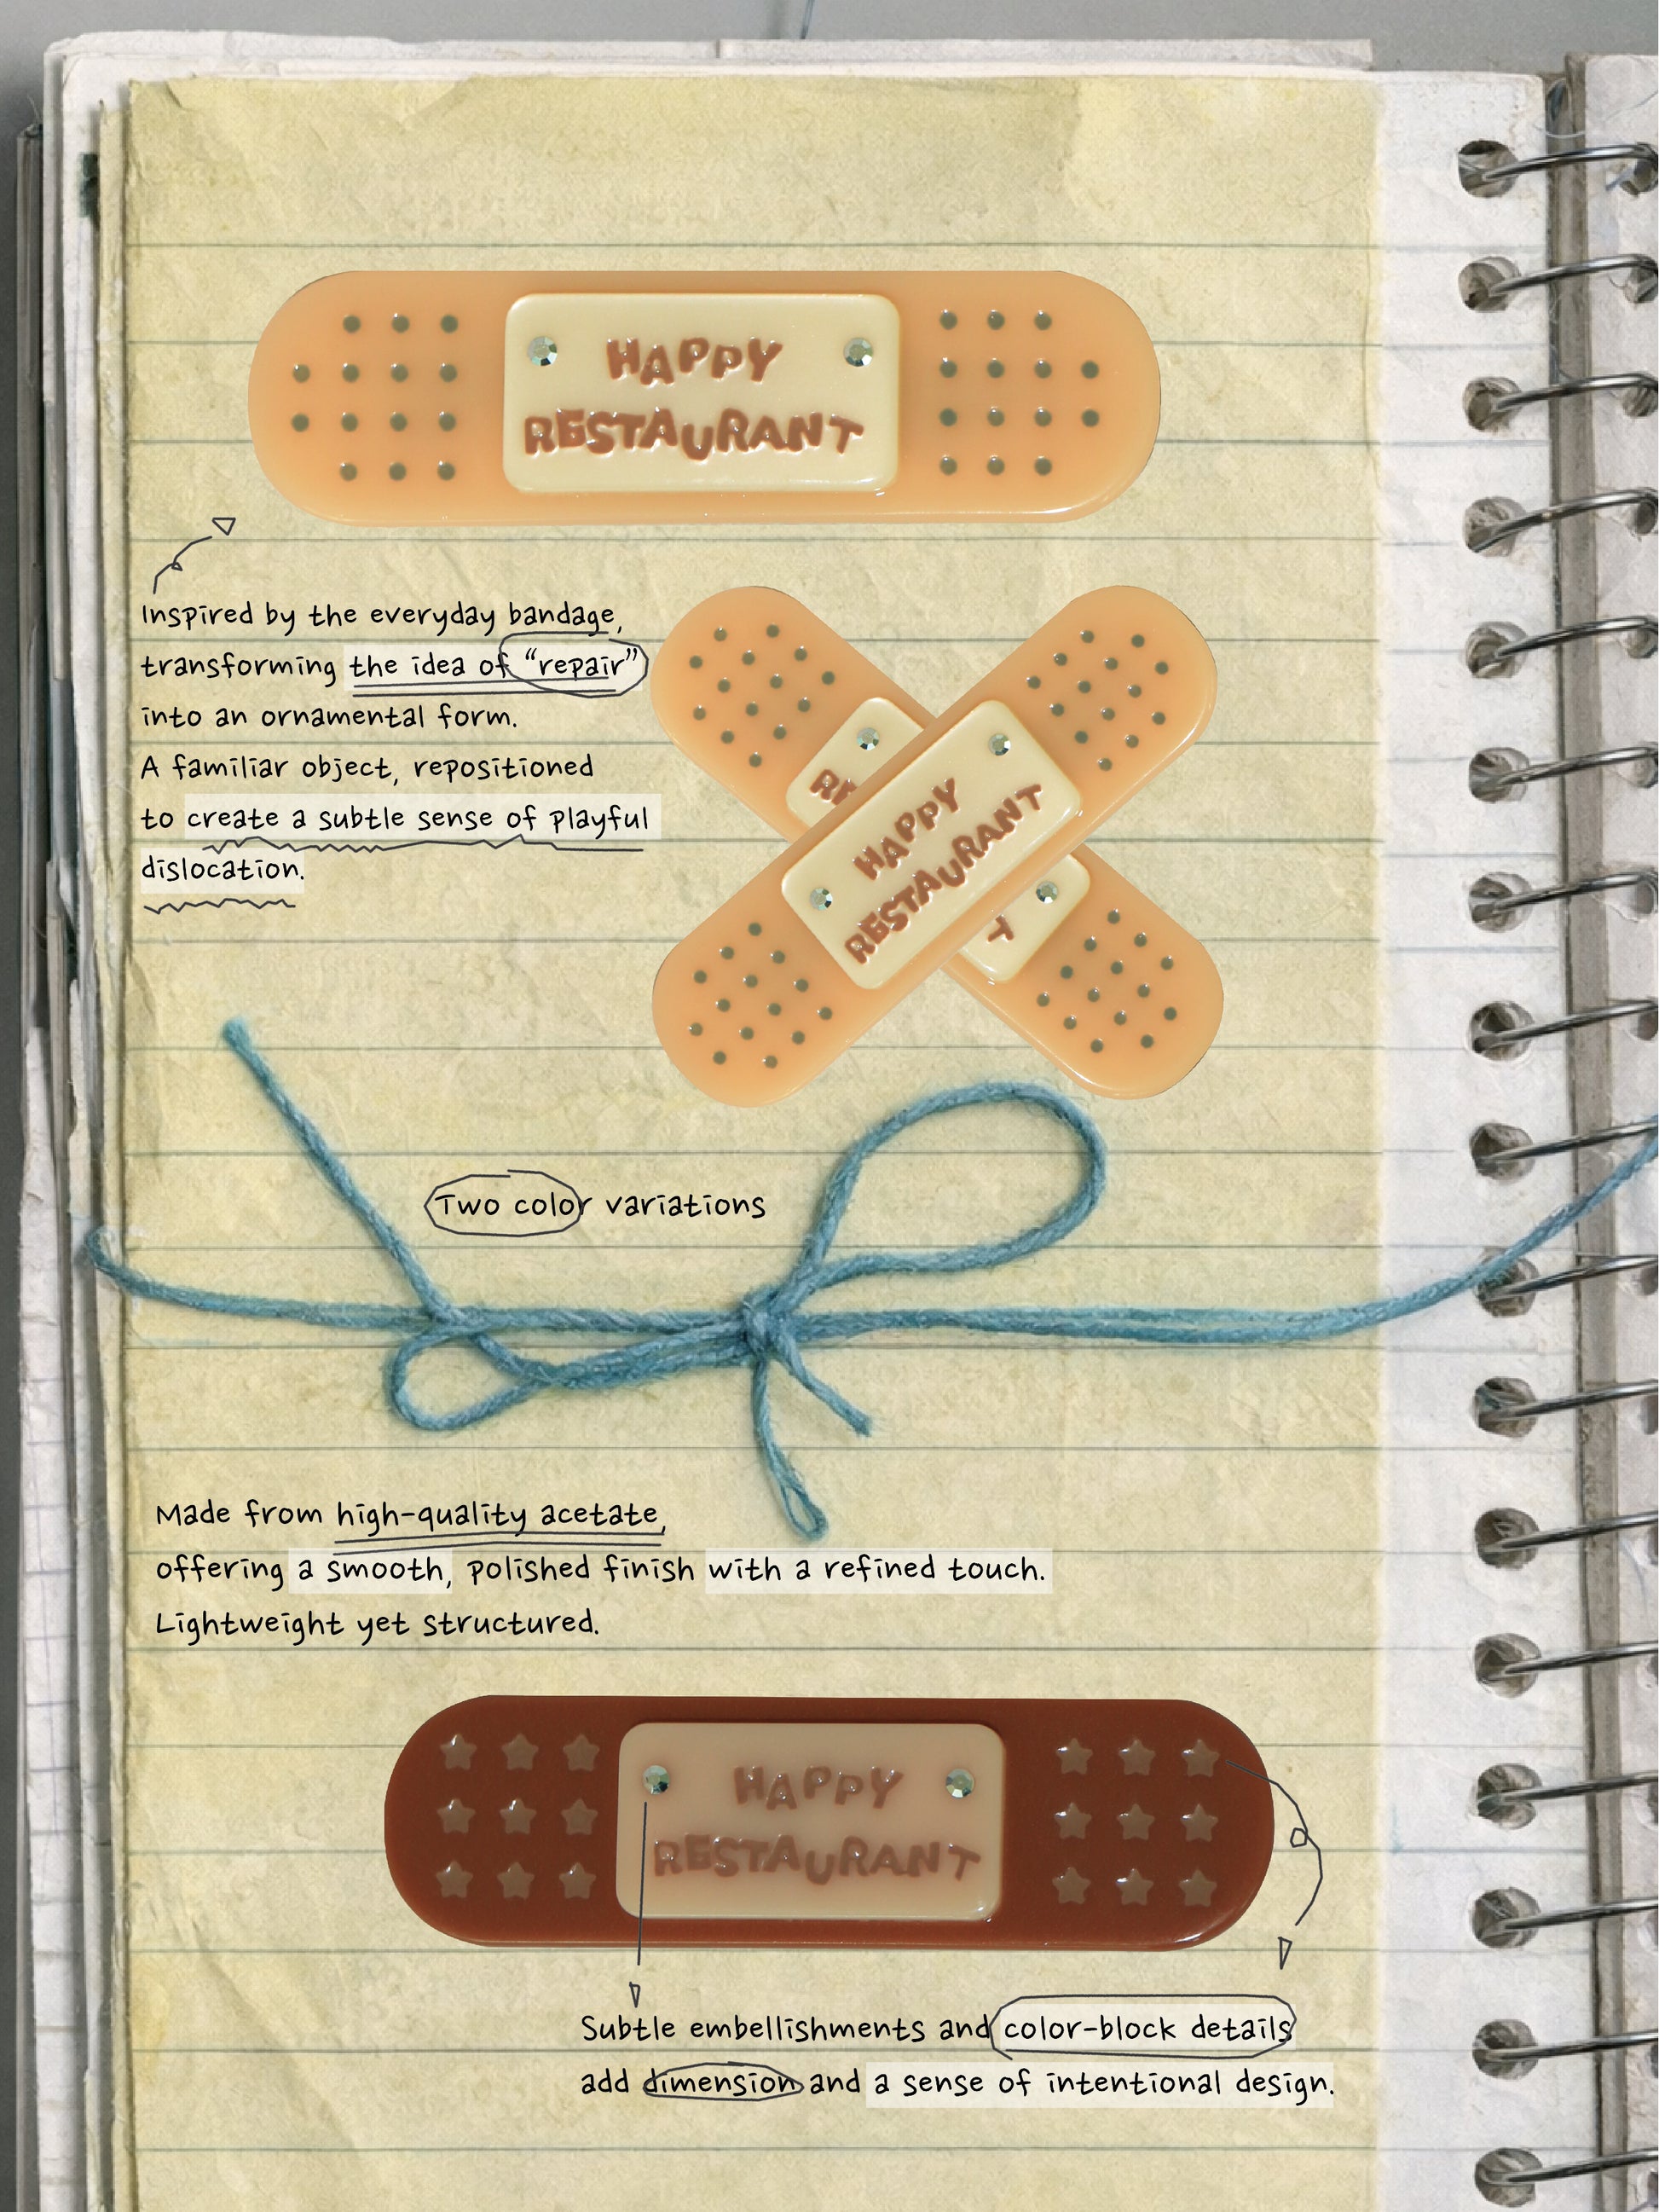 HAPPY
RESTAURANT
Inspired by the everyday bandage,
transforming the idea of “repair”
into an ornamental form.
A familiar object, repositioned
to create a subtle sense of playful
dislocation.
HAPPY
RESTAURANT
T
Two color variations
Made from high-quality acetate,
offering a smooth, polished finish with a refined touch.
Lightweight yet structured.
HAPPY
RESTAURANT
Subtle embellishments and color-block details
add dimension and a sense of intentional design.